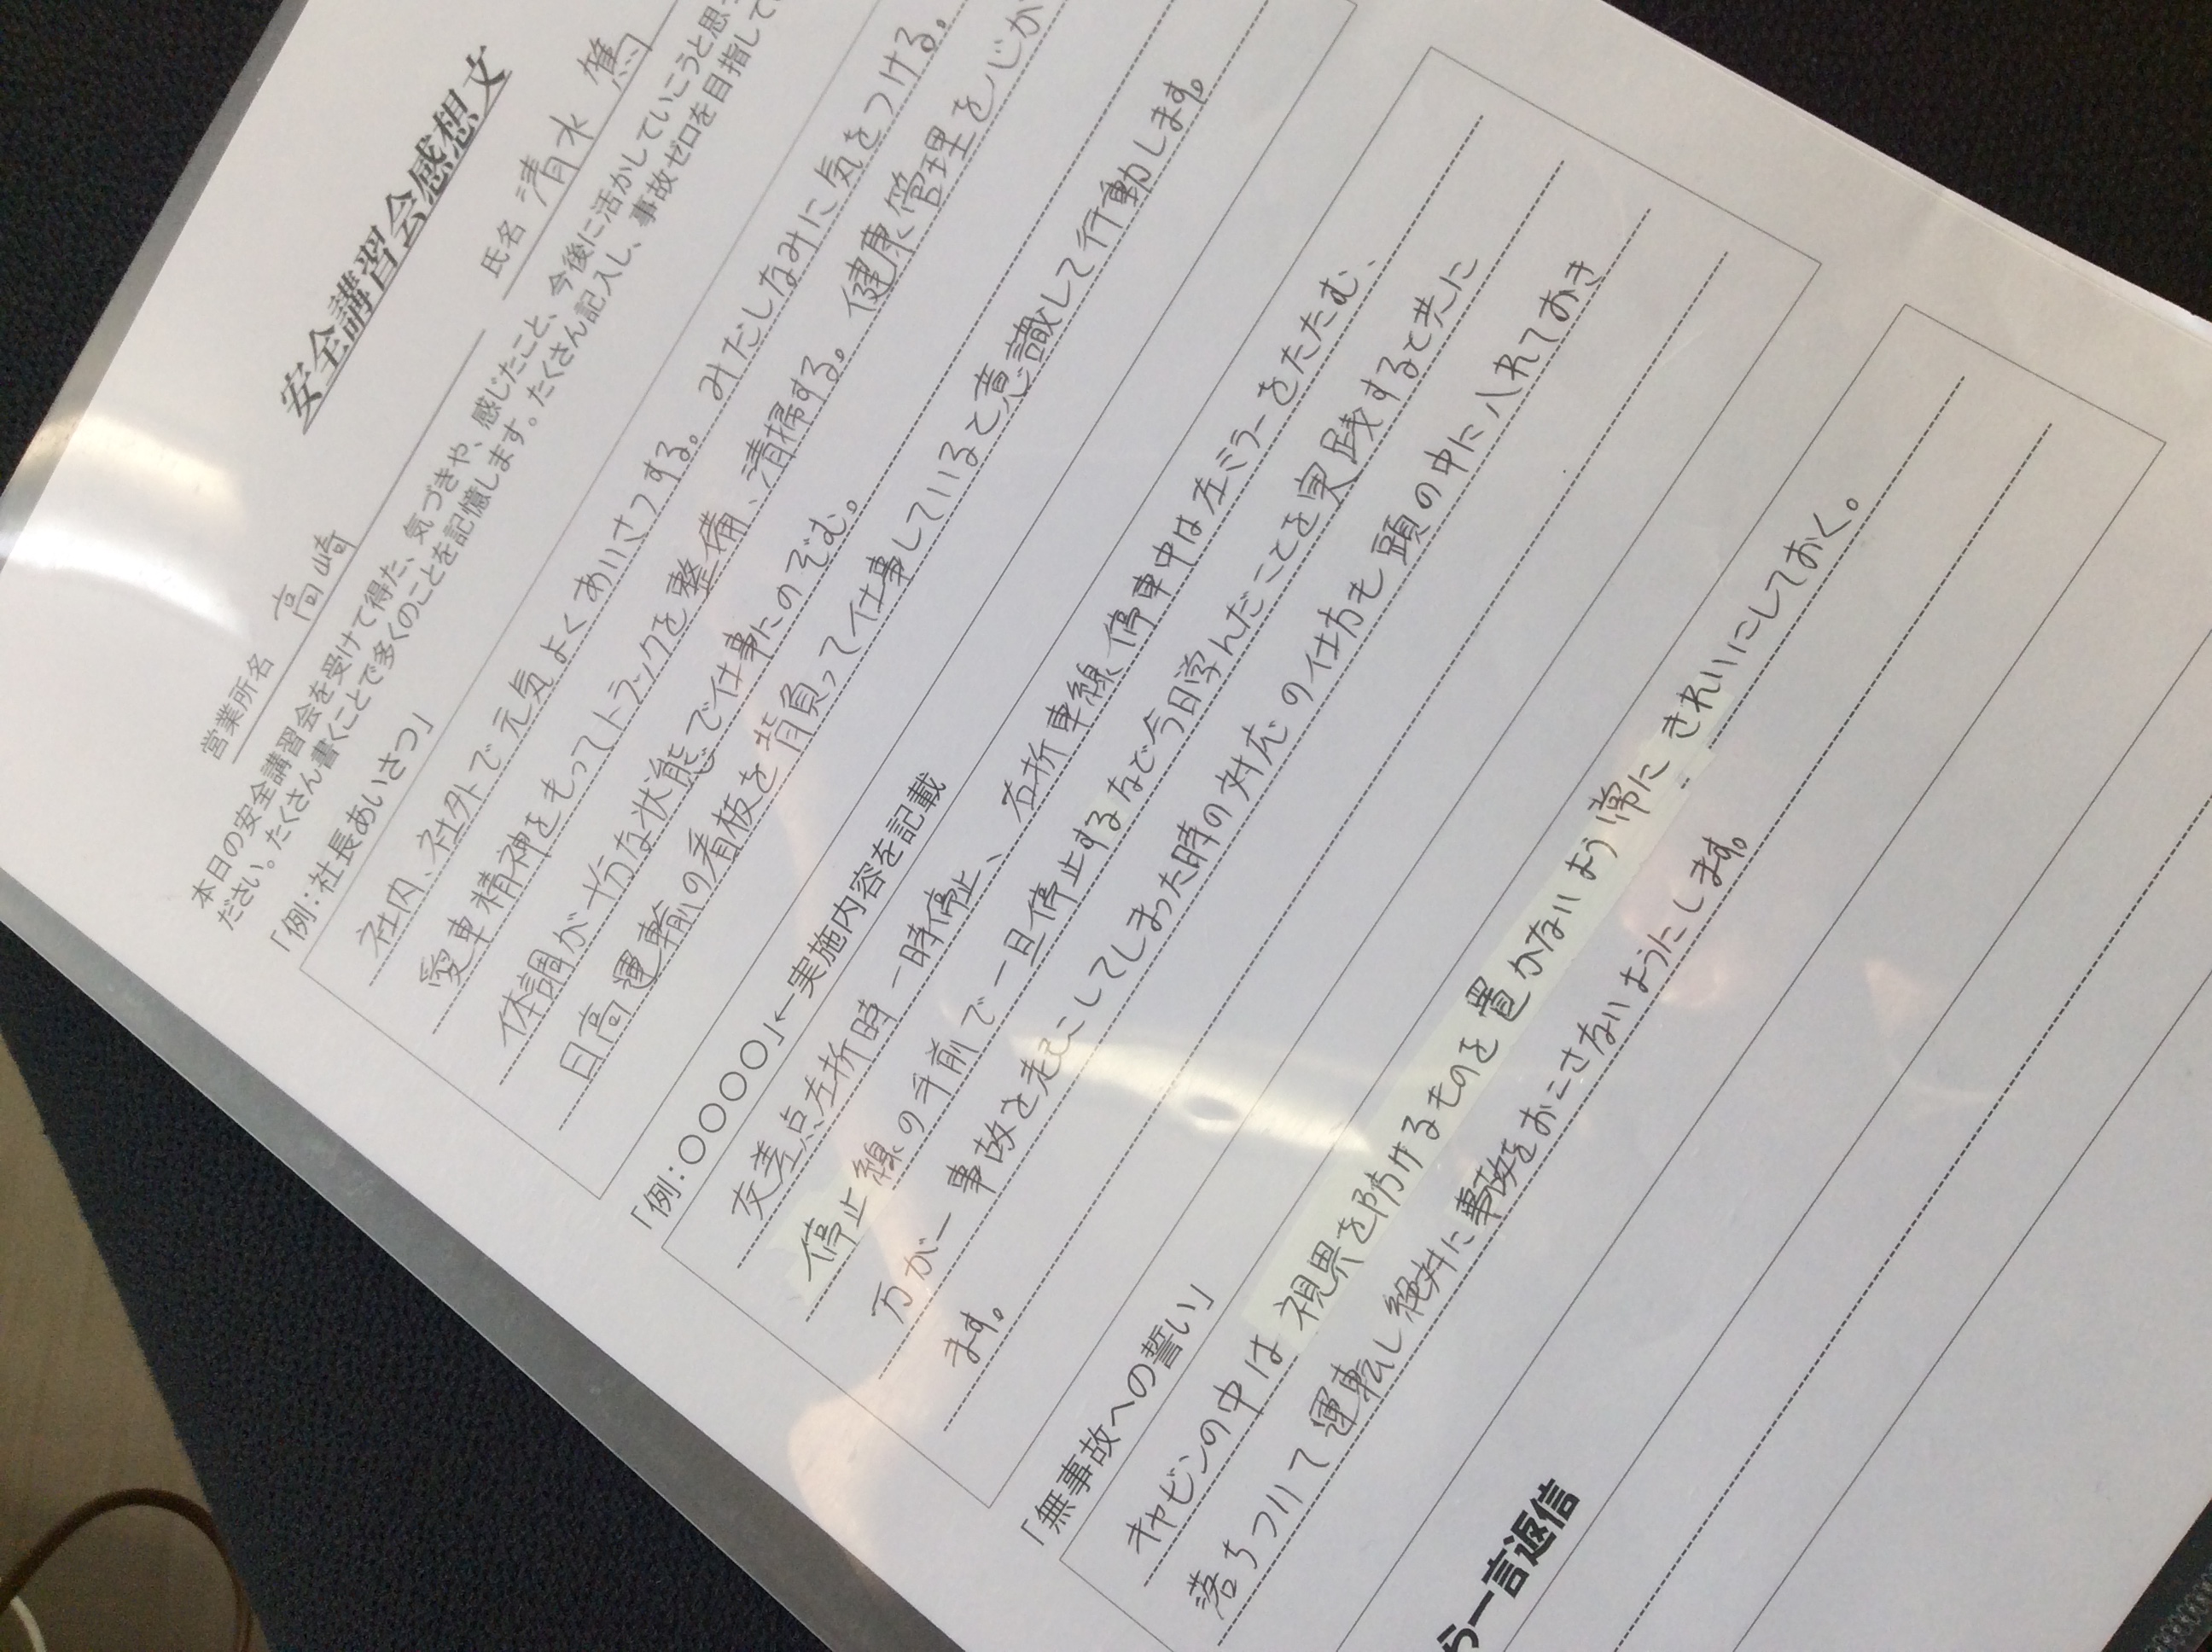 安全講習会感想文
営業所名 高崎 氏名 清水 篤
本日の安全講習会を受けて得た、気づきや、感じたこと、今後に活かしていこうと思
ださい。たくさん書くことで多くのことを記憶します。たくさん記入し、事故ゼロを目指して
「例：社長あいさつ」
社内、社外で元気よくあいさつする。みだしなみに気をつける。
愛車精神をもってトラックを整備、清掃する。健康管理を心が
体調が十分な状態で仕事にのぞむ。
日高運輸の看板を背負って仕事していると意識して行動します。
「例：〇〇〇〇」←実施内容を記載
交差点左折時一時停止、右折車線停車中は左ミラーをたたむ、
停止線の手前で一旦停止するなど今日学んだことを実践すると共に
万が一事故を起こしてしまった時の対応の仕方も頭の中に入れておき
ます。
「無事故への誓い」
キャビンの中は視界を防げるものを置かないよう常にきれいにしておく。
落ちついて運転し絶対に事故をおこさないようにします。
ら一言返信